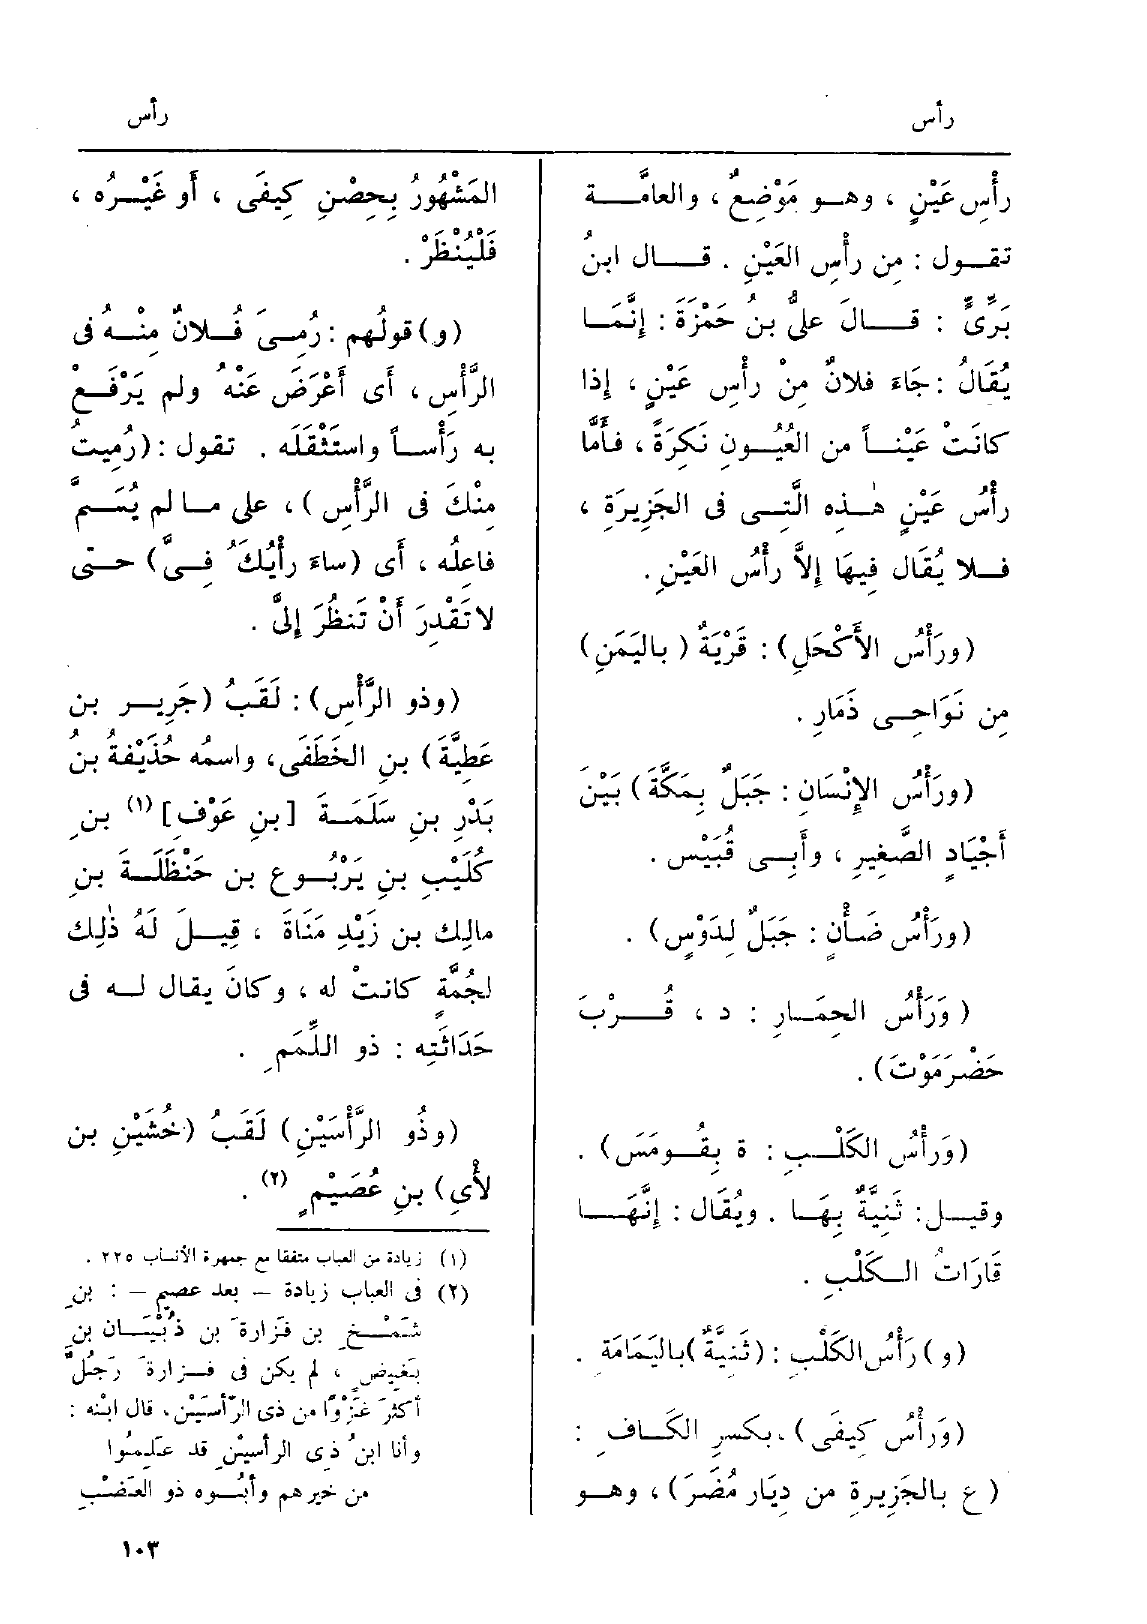 رأس
رأس
رأْسِ عَيْنٍ ، وهــو مَوْضِعٌ ، والعامَّــة
تقــول : مِن رأْسِ العَيْنِ . قــال ابنُ
بَرِّىٍّ : قــالَ علىُّ بنُ حَمْزَةَ : إِنَّمَــا
يُقَالُ : جَاءَ فلانٌ مِنْ رأْسِ عَيْنٍ ، إِذا
كانَتْ عَيْنــاً من العُيُــونِ نَكِرَةً ، فأَمَّا
رأْسُ عَيْنٍ هٰـذِه الَّتِــى فى الجَزِيرَةِ ،
فــلا يُقَال فِيهَا إِلاَّ رأْسُ العَيْنِ .
(ورَأْسُ الأَكْحَلِ) : قَرْيَةٌ ( باليَمَنِ )
مِن نَوَاحِــى ذَمَارِ .
(ورَأْسُ الإِنْسَانِ : جَبَلٌ بِمَكَّةَ) بَيْنَ
أَجْيَادٍ الصَّغِيرِ ، وأَبِــى قُبَيْس .
(ورَأْسُ ضَأْنٍ : جَبَلٌ لِدَوْسٍ) .
( وَرَأْسُ الحِمَــارِ : د ، قُــرْبَ
حَضْرَمَوْتَ) .
(وَرَأْسُ الكَلْــبِ : ة بِقُــومَسَ) .
وقيــل : ثَنِيَّةٌ بِهَــا . ويُقَال : إِنَّهَــا
قَارَاتُ الــكَلْبِ .
(و) رَأْسُ الكَلْبِ : (ثَنِيَّةٌ) باليَمَامَة .
(وَرَأْسُ كِيفَى) ، بكسرِ الكَــافِ :
( ع بالجَزِيرة من دِيَارِ مُضَرَ) ، وهــو
المَشْهُورُ بِحِصْنِ كِيفَى ، أَو غَيْــرُه ،
فَلْيُنْظَرْ .
(و) قولُهم : رُمِــىَ فُــلانٌ مِنْــهُ فى
الرَّأْسِ ، أَى أَعْرَضَ عَنْهُ ولم يَرْفَــعْ
به رَأْســاً واستَثْقَلَه . تقول : (رُمِيتُ
مِنْكَ فى الرَّأْسِ ) ، على مــا لم يُسَــمَّ
فاعِلُه ، أَى (ساءَ رأْيُكَ فِــىَّ) حــتى
لا تَقْدِرَ أَنْ تَنظُرَ إِلىَّ .
(وذو الرَّأْسِ) : لَقَبُ (جَرِيــرِ بن
عَطِيَّةَ) بنِ الخَطَفَى، واسمُه حُذَيْفَةُ بنُ
بَدْرِ بنِ سَلَمَــةَ [بنِ عَوْفِ] (١) بنِ
كُلَيْبِ بنِ يَرْبُــوعِ بن حَنْظَلَــةَ بنِ
مالِك بن زَيْدِ مَنَاةَ ، قِيــلَ لَهُ ذٰلِك
لجُمَّةٍ كانتْ له ، وكانَ يقال لــه فى
حَدَاثَتِه : ذو اللِّمَمِ .
(وذُو الرَّأْسَيْنِ) لَقَبُ (خُشَيْنِ بن
لأْىٍ) بنِ عُصَيْمٍ (٢) .
(١) زيادة من العباب متفقا مع جمهرة الأنساب ٢٢٥ .
(٢) فى العباب زيادة – بعد عصيم – : بنِ
شَمْــخِ بن فَزارةَ بن ذُبْيَــان بنِ
بَغِيضٍ ، لم يكن فى فــزارةَ رَجُلٌ
أكثرَ غَزْوًا من ذى الرَّأسَيْنِ ، قال ابْنه :
وأنا ابنُ ذِى الرأسيْنِ قد عَلِمُوا
من خيرهم وأبُــوه ذو العَضْبِ
١٠٣